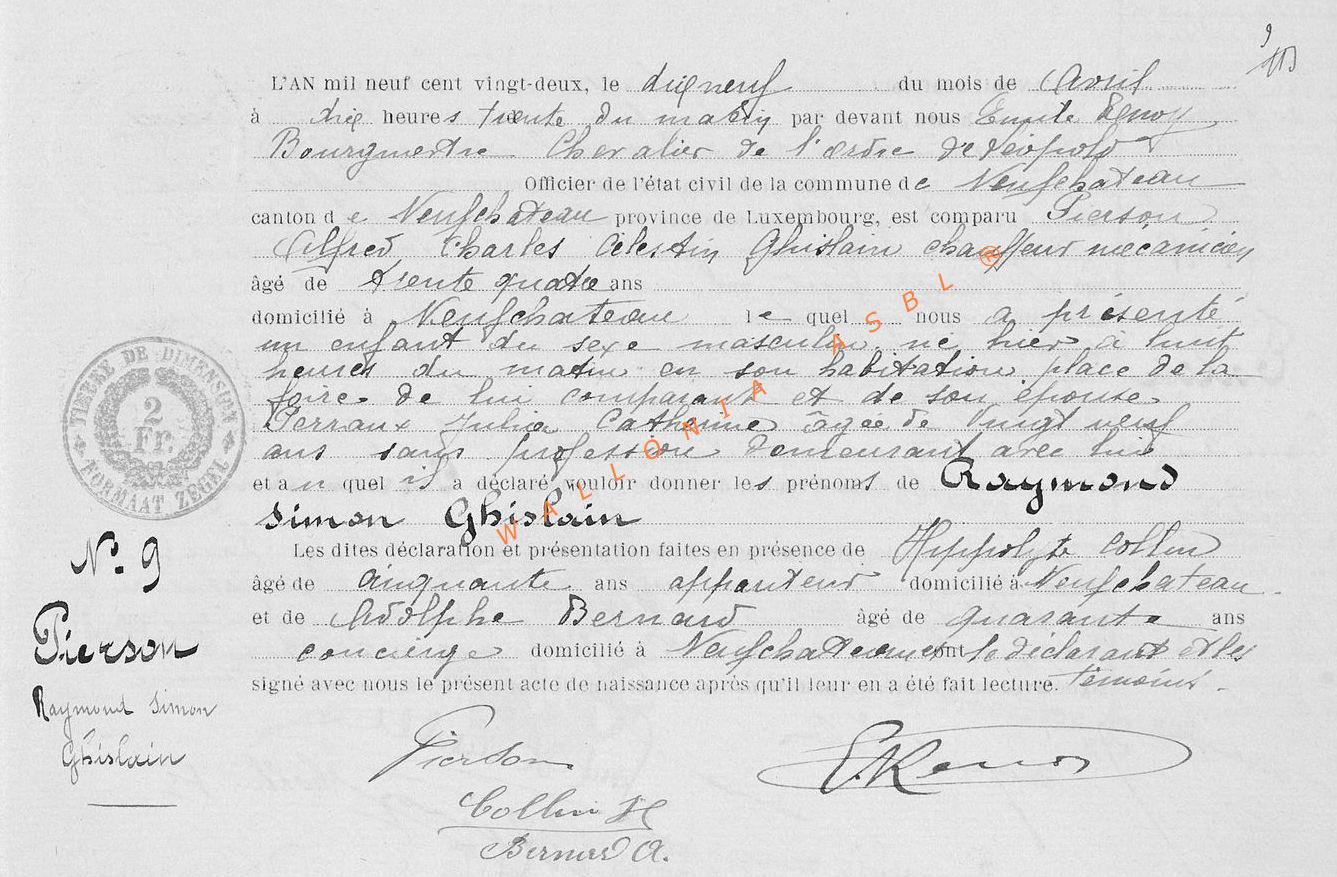 9
L'AN mil neuf cent vingt-deux, le dix neuf du mois de Avril
à dix heures trente du matin par devant nous Emile
Bourgmestre Chevalier de l'ordre de Léopold
Officier de l'état civil de la commune de Neufchateau
canton de Neufchateau province de Luxembourg, est comparu Pierson
Alfred, Charles Célestin Ghislain chauffeur mécanicien
âgé de trente quatre ans
domicilié à Neufchateau le quel nous a présenté
un enfant du sexe masculin, né hier à huit
heures du matin en son habitation place de la
foire, de lui comparant et de son épouse
Perraux Julia Catherine âgée de Vingt neuf
ans sans profession demeurant avec lui
et au quel il a déclaré vouloir donner les prénoms de Raymond
Simon Ghislain
Les dites déclaration et présentation faites en présence de Hippolyte Collin
âgé de cinquante ans appariteur domicilié à Neufchateau
et de Adolphe Bernard âgé de quarante ans
concierge domicilié à Neufchateau ont le déclarant et les
signé avec nous le présent acte de naissance après qu'il leur en a été fait lecture. témoins.
TIMBRE DE DIMENSION
2
Fr.
FORMAAT ZEGEL
No. 9
Pierson
Raymond Simon
Ghislain
Pierson
Collin H
Bernard A.
WALLONIA ASBL ®